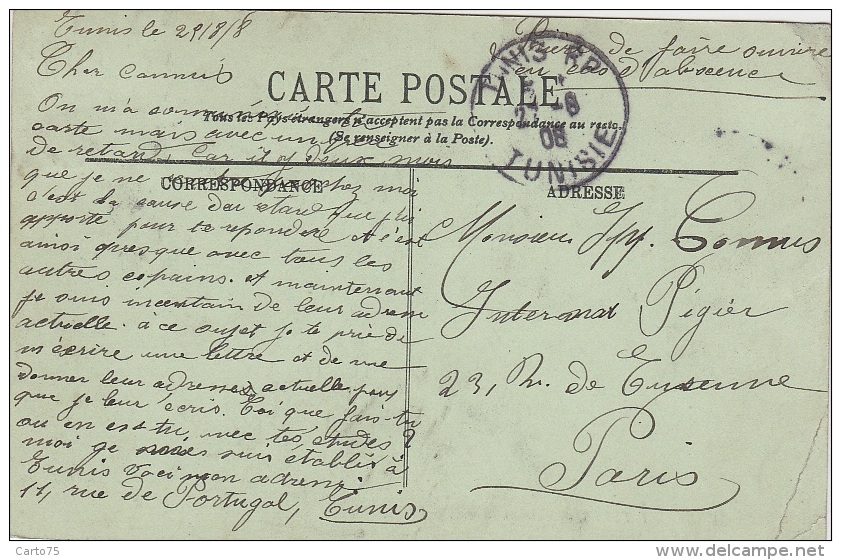 Tunis le 29/8/8
Prière de faire suivre
en cas d'absence
Cher Camus
CARTE POSTALE
TUNIS RP
8
08
TUNISIE
On m'a
Tous les Pays étrangers n'acceptent pas la Correspondance au recto.
carte mais avec un
(Se renseigner à la Poste).
de retard, Car il y deux mois
que je ne chez moi
CORRESPONDANCE
ADRESSE
c'est la cause du retard que j'ai
apporté pour te répondre et c'est
ainsi presque avec tous les
autres copains. et maintenant
je suis incertain de leur adresse
actuelle. à ce sujet je te prie de
m'écrire une lettre et de me
donner leur adresse actuelle pour
que je leur écris. Toi que fais-tu
où en es tu avec tes études?
moi je suis établis à
Tunis voici mon adresse
11, rue de Portugal, Tunis
Monsieur
Internat Pigier
23, R. de Turenne
Paris
Carto75
www.delcampe.net